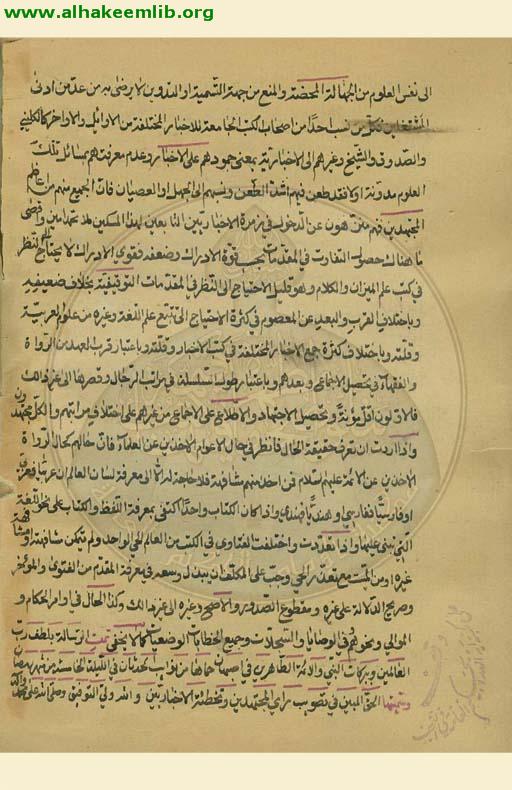 www.alhakeemlib.org
الى نفس العلوم من الجهالة المحضة والمنع من جهة التسمية او التدوين لا يرضى به من عد من ادنى
المشتغلين فكل من نسب احدا من اصحاب كتب الجامعة للاخبار المختلفة من الاوائل والاواخر كالكليني
والصدوق والشيخ وغيرهم الى الاخبارية بمعنى جمودهم على الاخبار وعدم معرفتهم بمسائل تلك
العلوم مدونة اولا فقد طعن فيهم اشد الطعن ونسبهم الى الجهل او العصيان فان الجميع منهم من اعاظم
المجتهدين فهم منزهون عن الدخول في زمرة الاخباريين التابعين لهذا المسكين
ما هناك حصول التفاوت في المقدمات بحسب قوة الادراك وضعفه فقوي الادراك لا يحتاج للنظر
في كتب علم الميزان والكلام وهو قليل الاحتياج الى النظر في المقدمات التوقيفية بخلاف ضعيفه
وباختلاف القرب والبعد عن المعصوم في كثرة الاحتياج الى تتبع علم اللغة وغيره من علوم العربية
وقلته وباختلاف كثرة جمع الاخبار المختلفة في كتب الاخبار وقلته وباعتبار قرب العهد من الرواة
والفقهاء في تحصيل الاجماع وبعدهم وباعتبار طول السلسلة في مراتب الرجال وقصرها الى غير ذلك
فالاولون اقل مؤنة في تحصيل الاجتهاد والاطلاع على الاجماع من غيرهم على اختلاف مراتبهم والكل مجتهدون
واذا اردت ان تعرف حقيقة الحال فانظر في حال الاعوام الاخذين عن العلماء فان حالهم كحال الرواة
الاخذين عن الائمة عليهم السلام فمن اخذ منهم مشافهة فلا حاجة له الا الى معرفة لسان العالم ان عربيا فعربي
او فارسيا ففارسي او هنديا فهندي واذا كان الكتاب واحدا اكتفى بمعرفة اللفظ والكتاب على نحو اللغة
التي بنى عليها واذا تعددت واختلفت الفتاوى في الكتب من العالم الحي الواحد ولم يمكن مشافهته او مشافهة
غيره او من الميت مع تعذر الحي وجب على المكلف ان يبذل وسعه في معرفة المقدم من الفتوى والمؤخر
وصريح الدلالة على غيره ومقطوع الصدق والاصح وغيره الى غير ذلك وكذا الحال في اوامر الحكام و
الموالي ونحوهم وفي الوصايا والسجلات وجميع الخطابات الوضعية كما لا يخفى تمت الرسالة بلطف رب
العالمين وبركات النبي والائمة الطاهرين في اصفهان حماها من نوائب الحدثان في الليلة الخامسة من شهر رمضان
وسميتها الحق المبين في تصويب راي المجتهدين وتخطئة الاخباريين والله ولي التوفيق وصلى الله على محمد واله